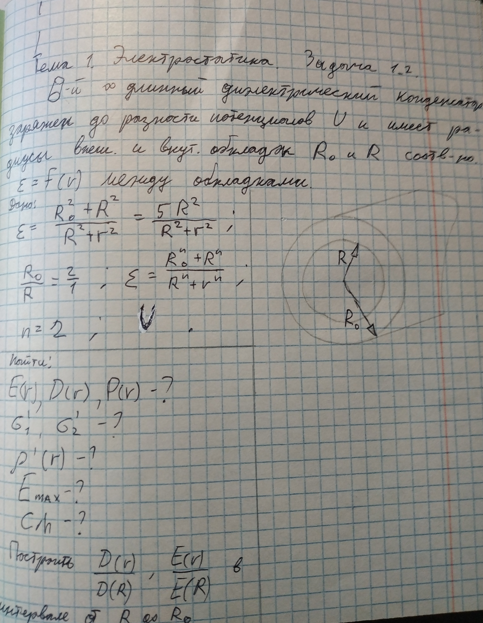 Тема 1. Электростатика. Задача 1.2.
В-й ∞ длинный диэлектрический конденсатор
заряжен до разности потенциалов U и имеет ра-
диусы внеш. и внут. обкладок R₀ и R соотв-но.
ε = f(r) между обкладками.
Дано:
ε = (R₀² + R²)/(R² + r²) = 5R²/(R² + r²) ;
R₀/R = 2/1 ; ε = (R₀ⁿ + Rⁿ)/(Rⁿ + rⁿ) ;
n = 2 ; U .
R
R₀
Найти:
E(r), D(r), P(r) - ?
σ₁', σ₂' - ?
ρ'(r) - ?
Eмах - ?
Построить D(r)/D(R) , E(r)/E(R) в
интервале от R до R₀